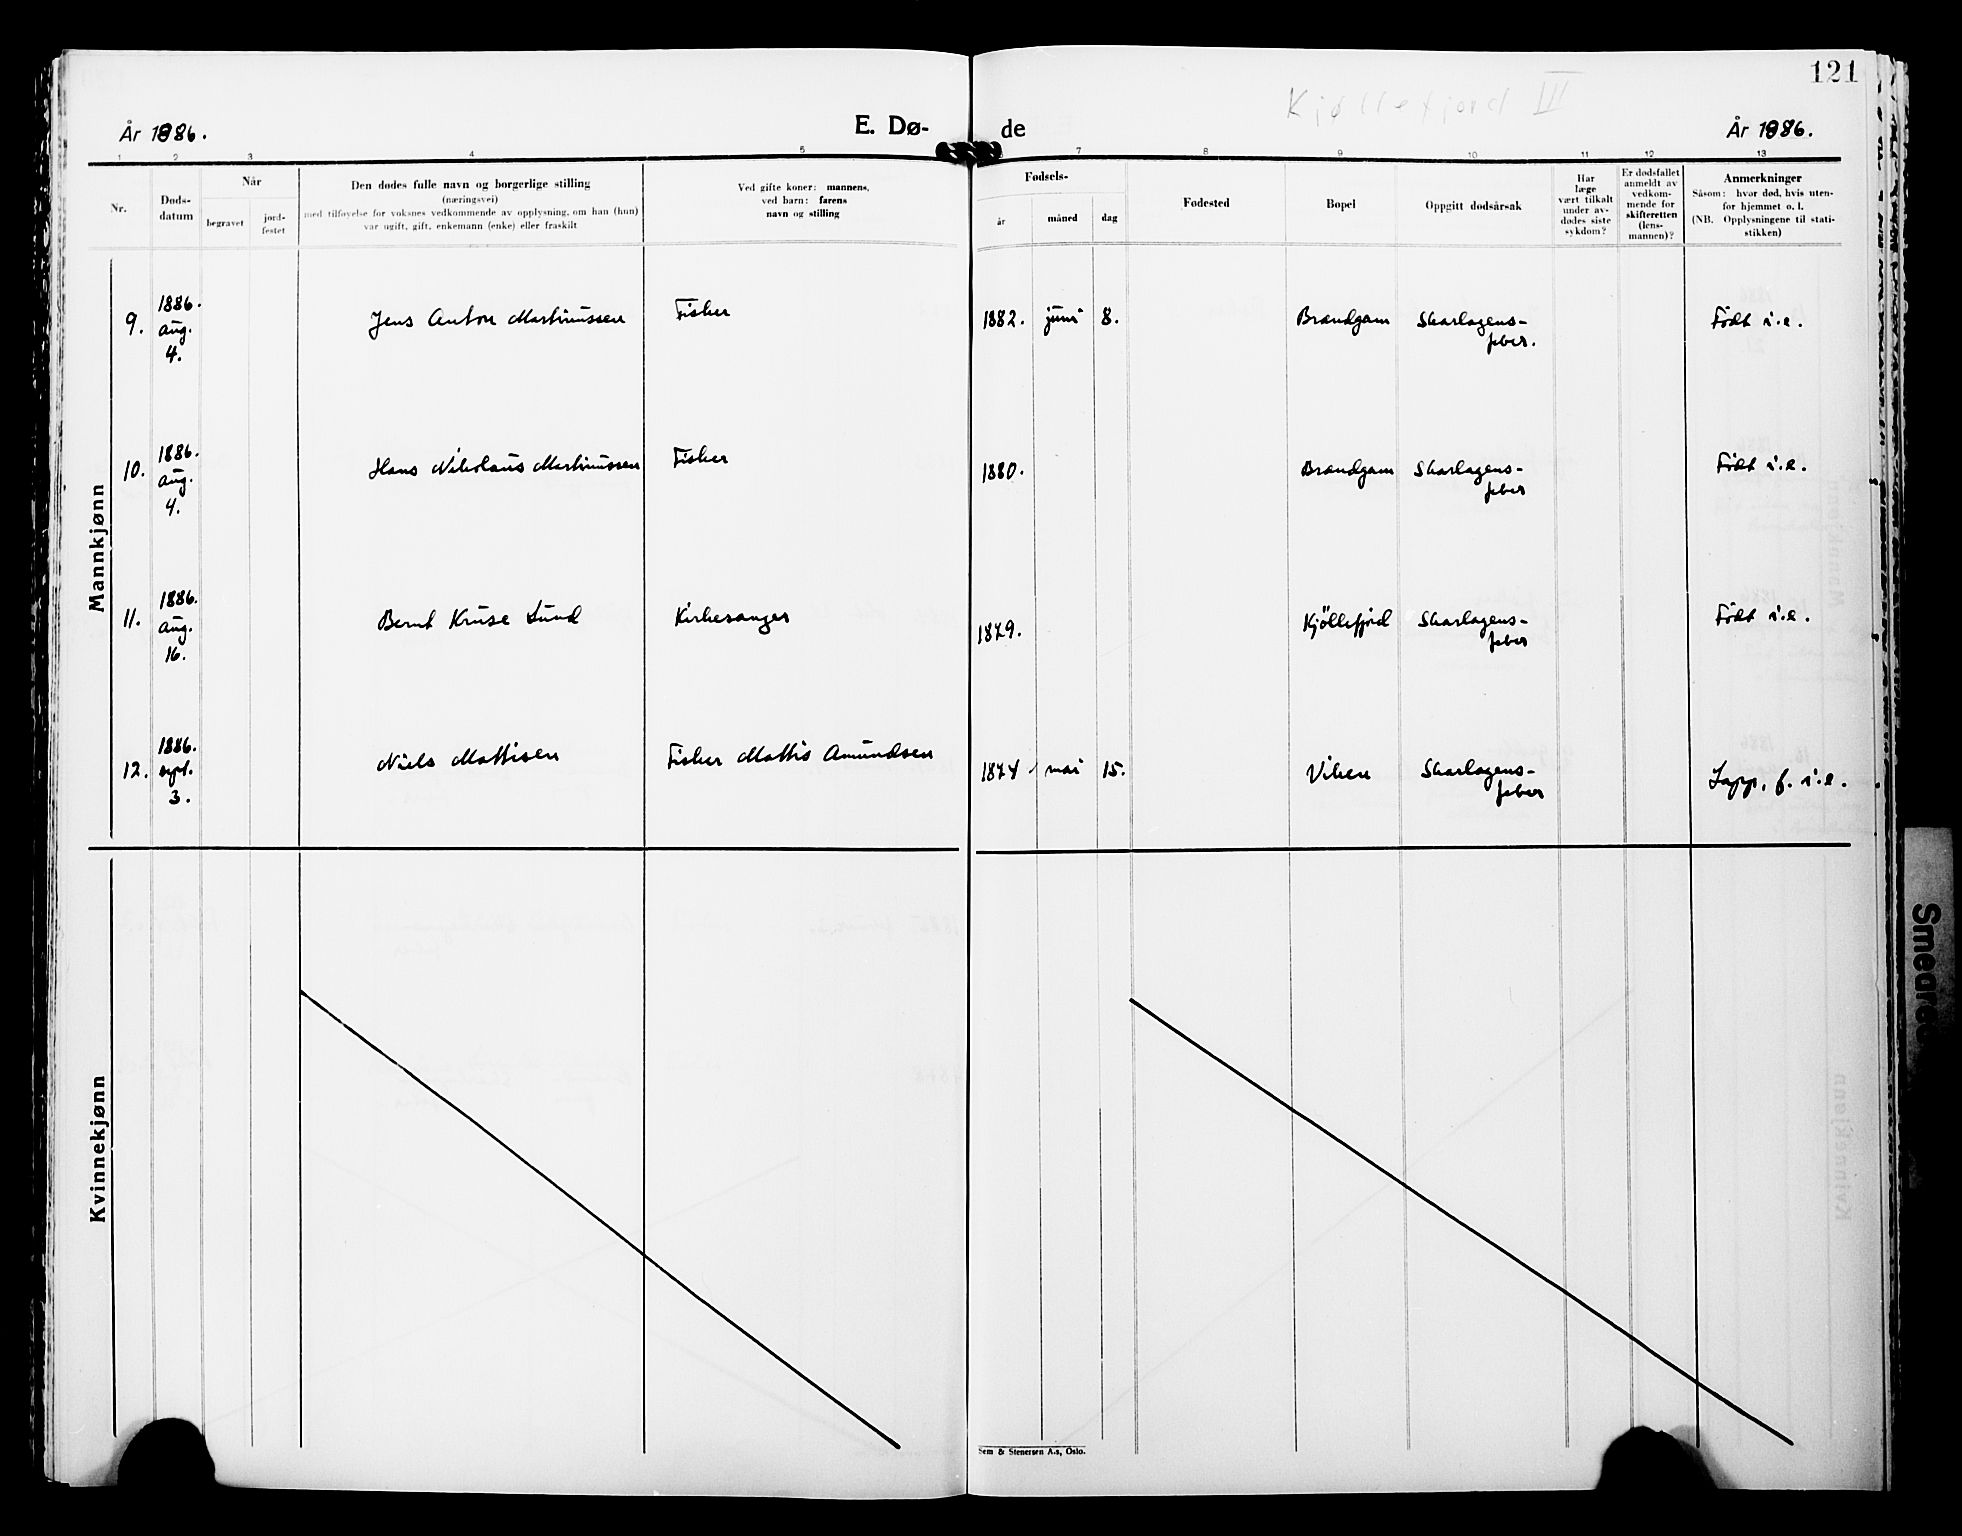 121
Kjøllefjord III
År 1886.
E. Dø-
de
År 1886.
1 2 3 4 5 7 8 9 10 11 12 13
Nr.
Døds-
datum
Når
begravet
jord-
festet
Den dødes fulle navn og borgerlige stilling
(næringsvei)
med tilføyelse for voksnes vedkommende av opplysning, om han (hun)
var ugift, gift, enkemann (enke) eller fraskilt
Ved gifte koner: mannens,
ved barn: farens
navn og stilling
Fødsels-
år
måned
dag
Fødested
Bopel
Oppgitt dødsårsak
Har
læge
vært tilkalt
under av-
dødes siste
sykdom?
Er dødsfallet
anmeldt av
vedkom-
mende for
skifteretten
(lens-
mannen)?
Anmerkninger
Såsom: hvor død, hvis uten-
for hjemmet o. l.
(NB. Opplysningene til stati-
stikken)
Mannkjønn
9.
1886.
aug.
4.
Jens Anton Martinussen
Fisker
1882. juni 8.
Brandgam
Skarlagens-
feber.
Født i.e.
10.
1886.
aug.
4.
Hans Nikolaus Martinussen
Fisker
1880.
Brandgam
Skarlagens-
feber
Født i.e.
11.
1886.
aug.
16.
Bernt Kruse Lund
Kirkesanger
1879.
Kjöllefjord
Skarlagens-
feber
Født i.e.
12.
1886.
sept.
3.
Niels Mattisen
Fisker Mattis Amundsen
1874 mai 15.
Viken
Skarlagens-
feber
Lapp, f. i.e.
Kvinnekjønn
Sem & Stenersen A.s, Oslo.